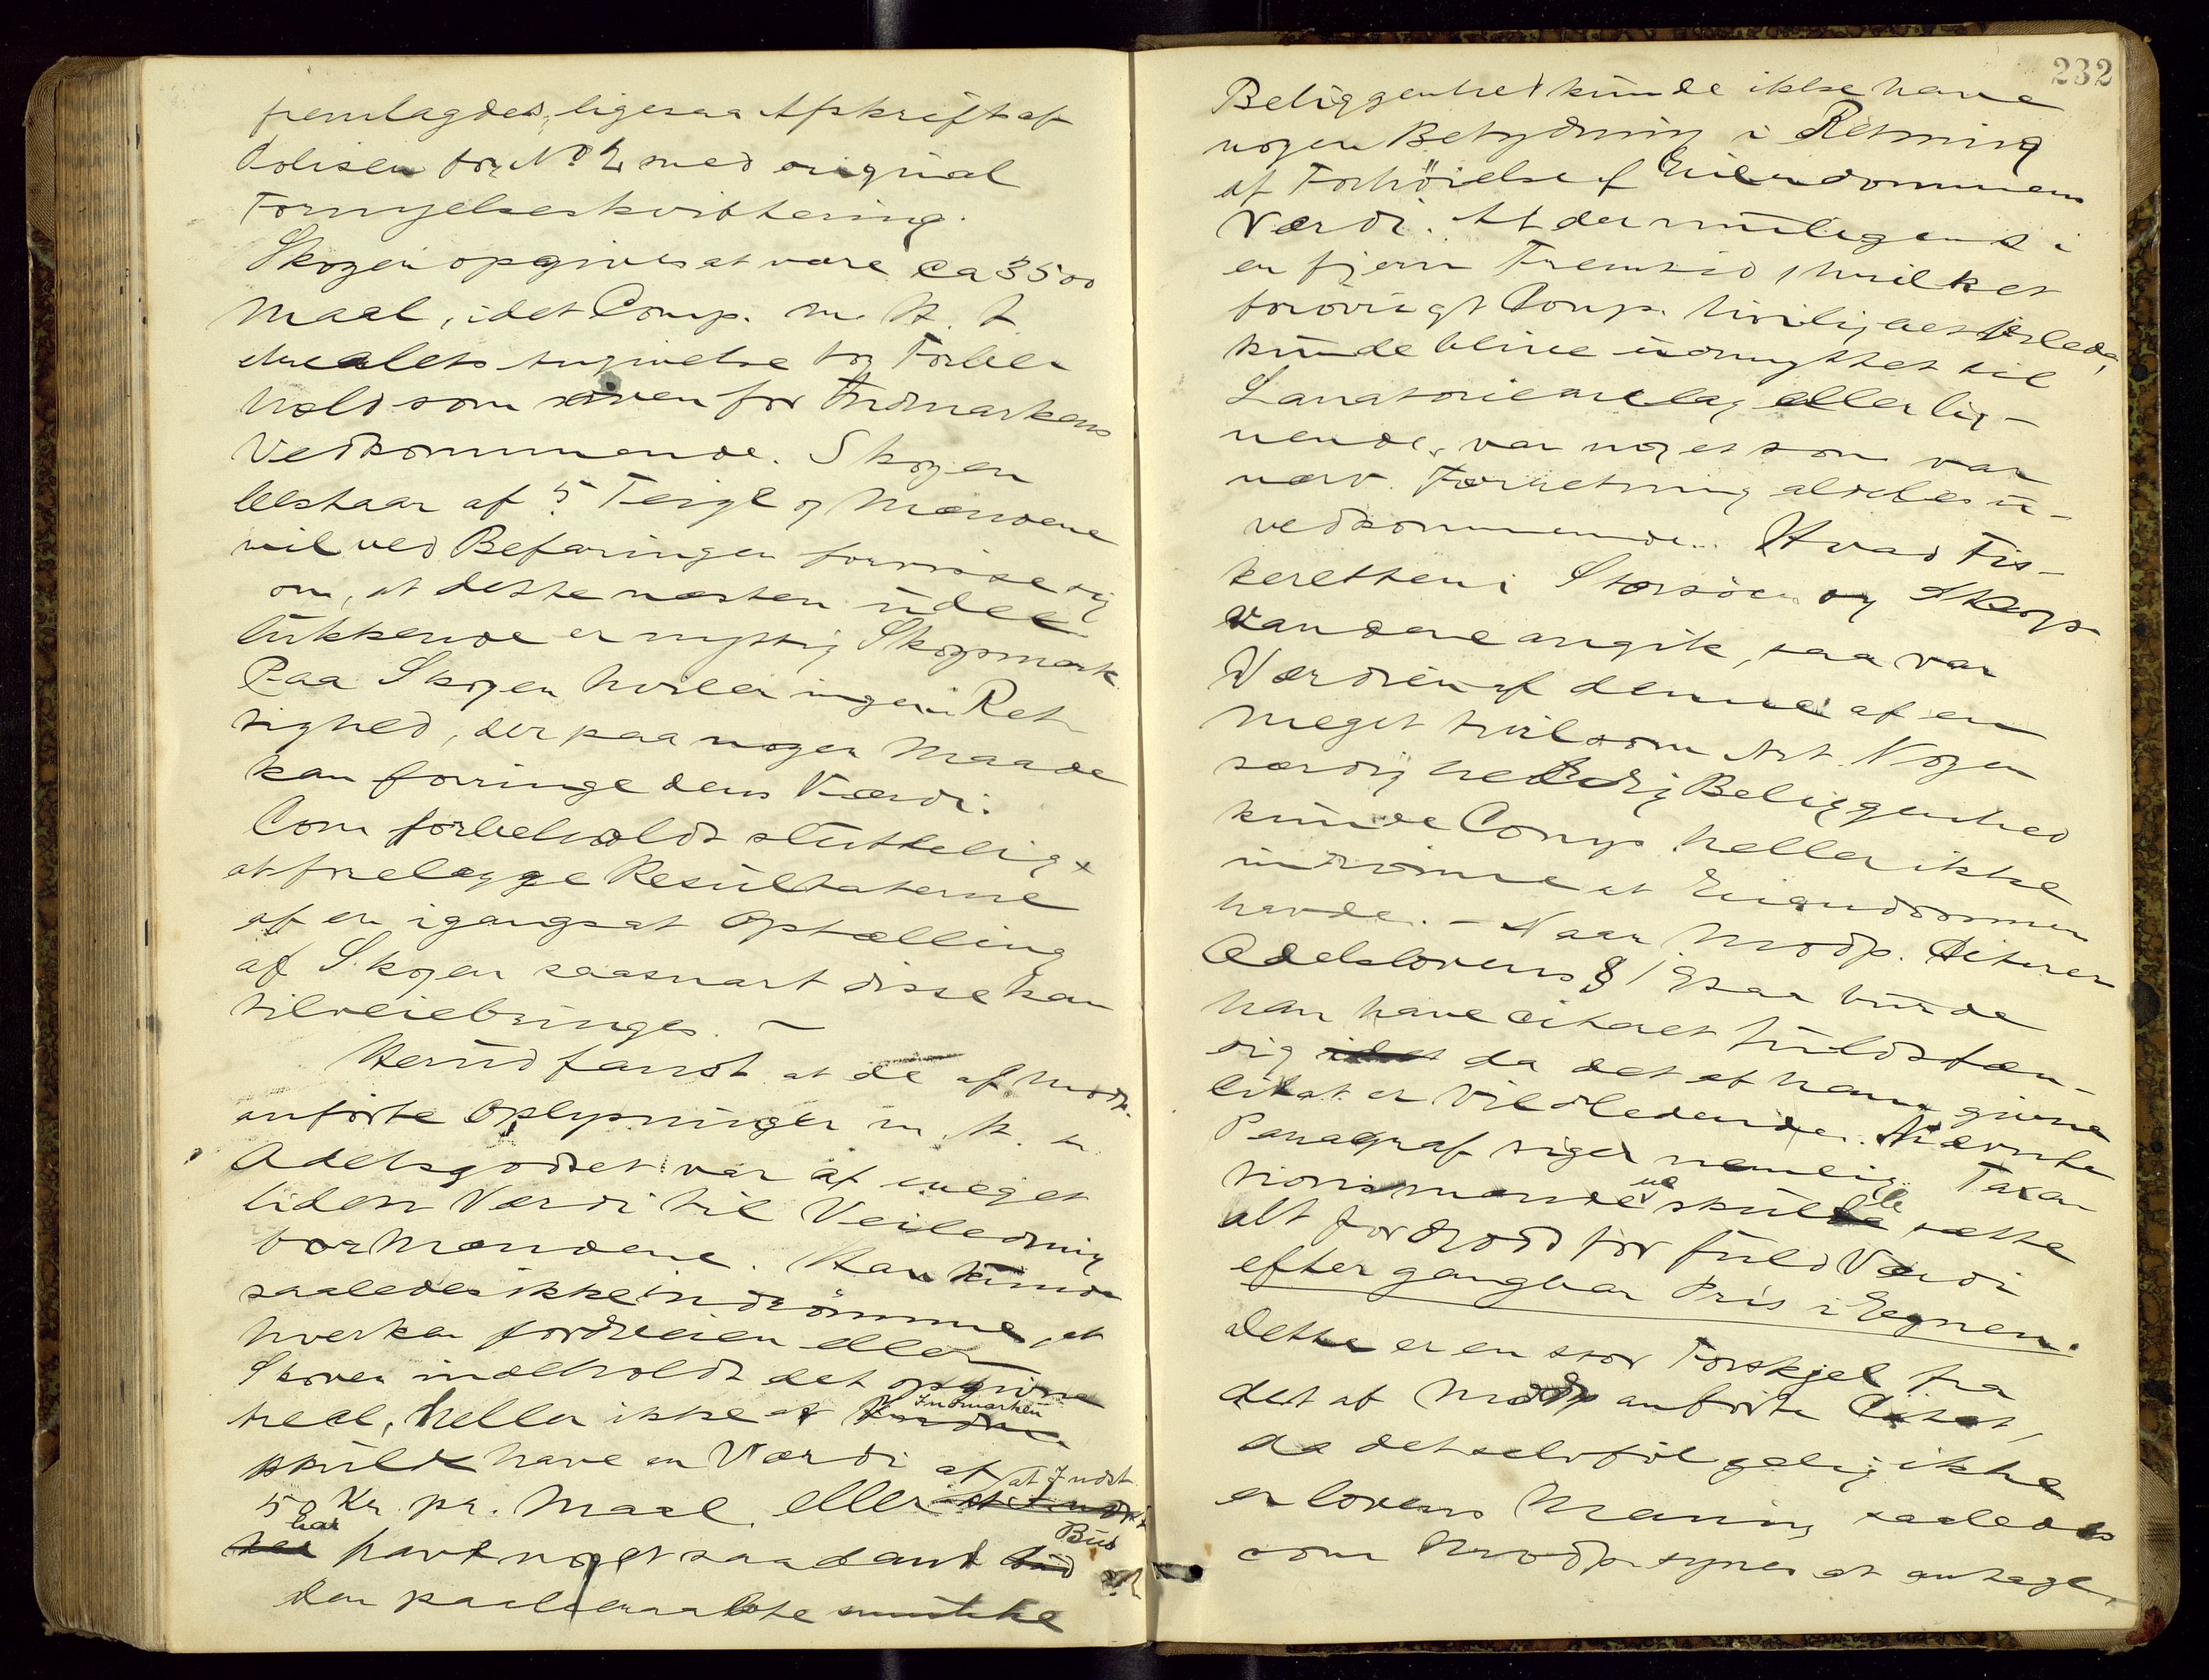 fremlagdes, ligesaa Afskrift af
Polisen for No 2 med original
Fornyelseskvittering.
Skogen opgives at være ca 3500
Maal, idet Comp. m. H. t.
Maalets angivelse tog Forbe-
hold som oven for Indmarkens
Vedkommende. Skogen
bestaar af 5 Teige og Mændene
vil ved Befaringen forvisse sig
om, at dette næsten ude-
lukkende er nyttig Skogsmark.
Paa Skogen hviler ingen Ret-
tighed, der paa nogen Maade
kan forringe dens Værdi.
Com forbeholdt sluttelig
at fremlægge Resultaterne
af en igangsat Optælling
af Skogen saasnart disse kan
tilveiebringes. —
Herud fandt at de af Modp.
anførte Oplysninger m. H. t.
Odelsgodset var af meget
liden Værdi til Veiledning
for Mændene. Han kunde
saaledes ikke indrømme, at
hverken Jordveien eller
Skoven indeholdt det opgivne
Areal, heller ikke at Indmarken
skulde have en Værdi af
50 Kr. pr. Maal, eller at Indst.
har havt noget saadant Bud
den paaberaabte smukke
232
Beliggenhed kunde ikke have
nogen Betydning i Retning
af Forhøielse af Eiendommens
Værdi. At der muligens i
en fjern Fremtid, hvilket
forøvrigt Comp. tvilig bestrer,
kunde blive udnyttet til
Sanatorieanlæg eller lig-
nende, var noget som var
nærv. Forretning aldeles u-
vedkommende. Hvad Fis-
keretten i Storsøen og Skogs-
vandene angik, saa var
Værdien af denne af en
meget tvilsom Art. Nogen
særdig heldig Beliggenhed
kunde Comp. heller ikke
indrømme at Eiendommen
havde. — Naar Modp. citerer
Odelslovens § 19 saa burde
han have citeret fuldstæn-
dig da det af ham givne
Citat er vildledende. Nævnte
Paragraf siger nemlig: Taxa-
tionsmændene skulle sætte
alt Jordgods for fuld Værdi
efter gangbar Pris i Egnen.
dette er en stor Forskjel fra
det af Modp anførte Citat,
da det selvfølgelig ikke
er lovens Mening saaledes
som Modp. synes at antage,